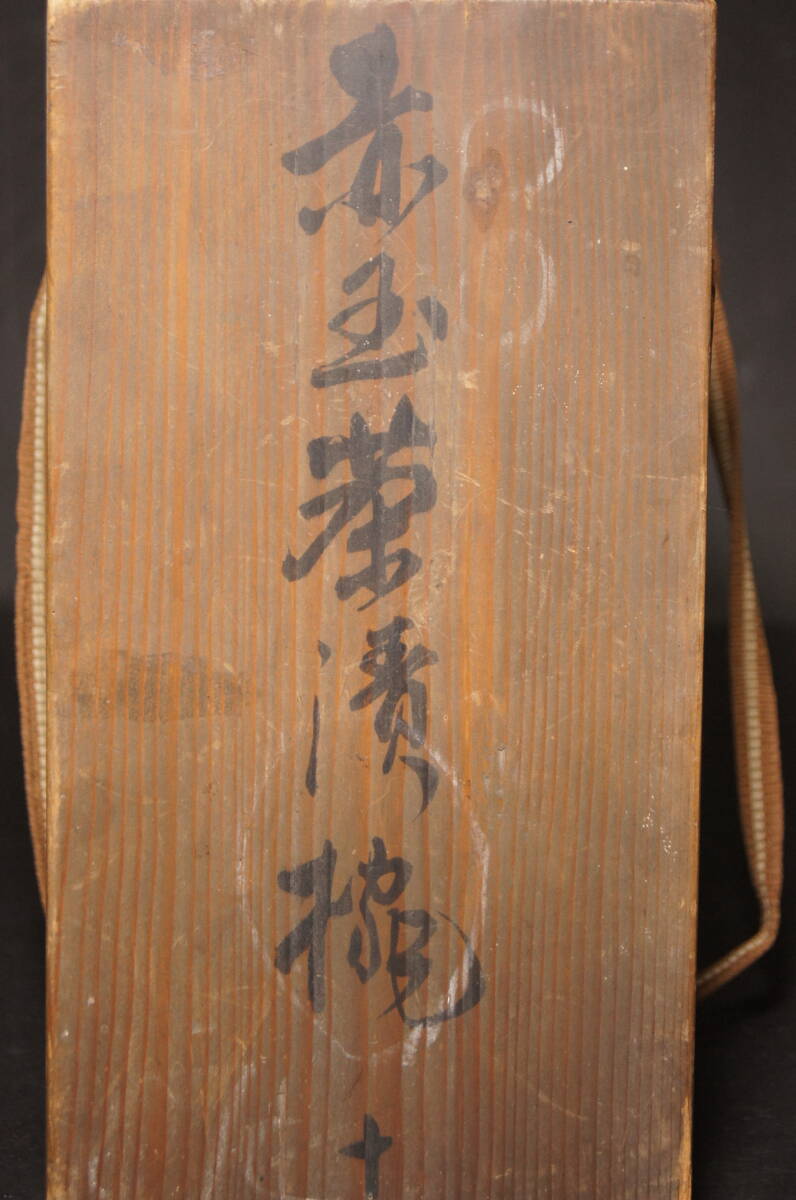 赤玉茶漬椀 十